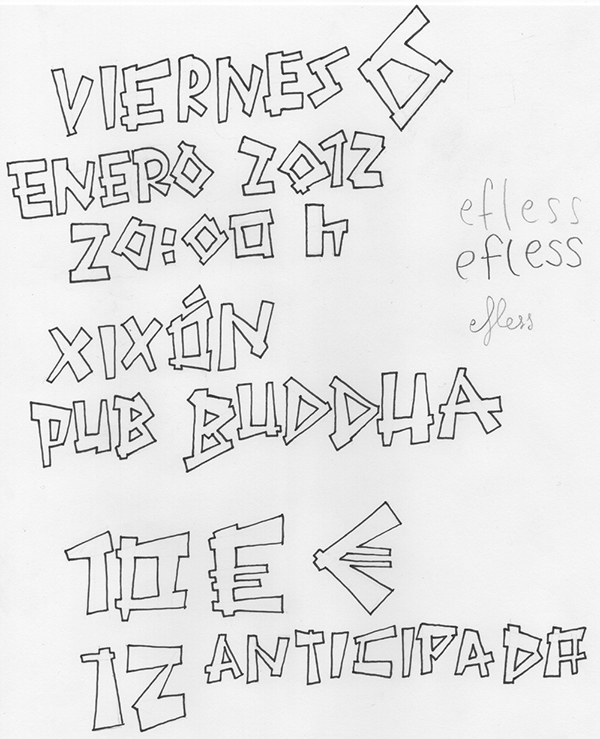 VIERNES 6
ENERO 2012
20:00 h
XIXÓN
PUB BUDDHA
10 E €
12 ANTICIPADA
efless
efless
efless